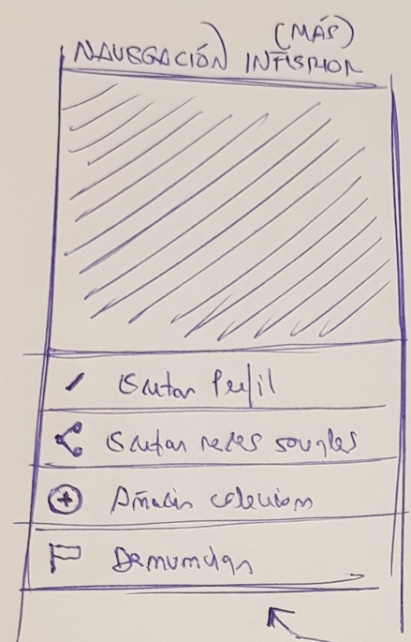 (MÁS)
NAVEGACIÓN INFERIOR
Editar Perfil
Editar redes sociales
Añadir colección
Denunciar